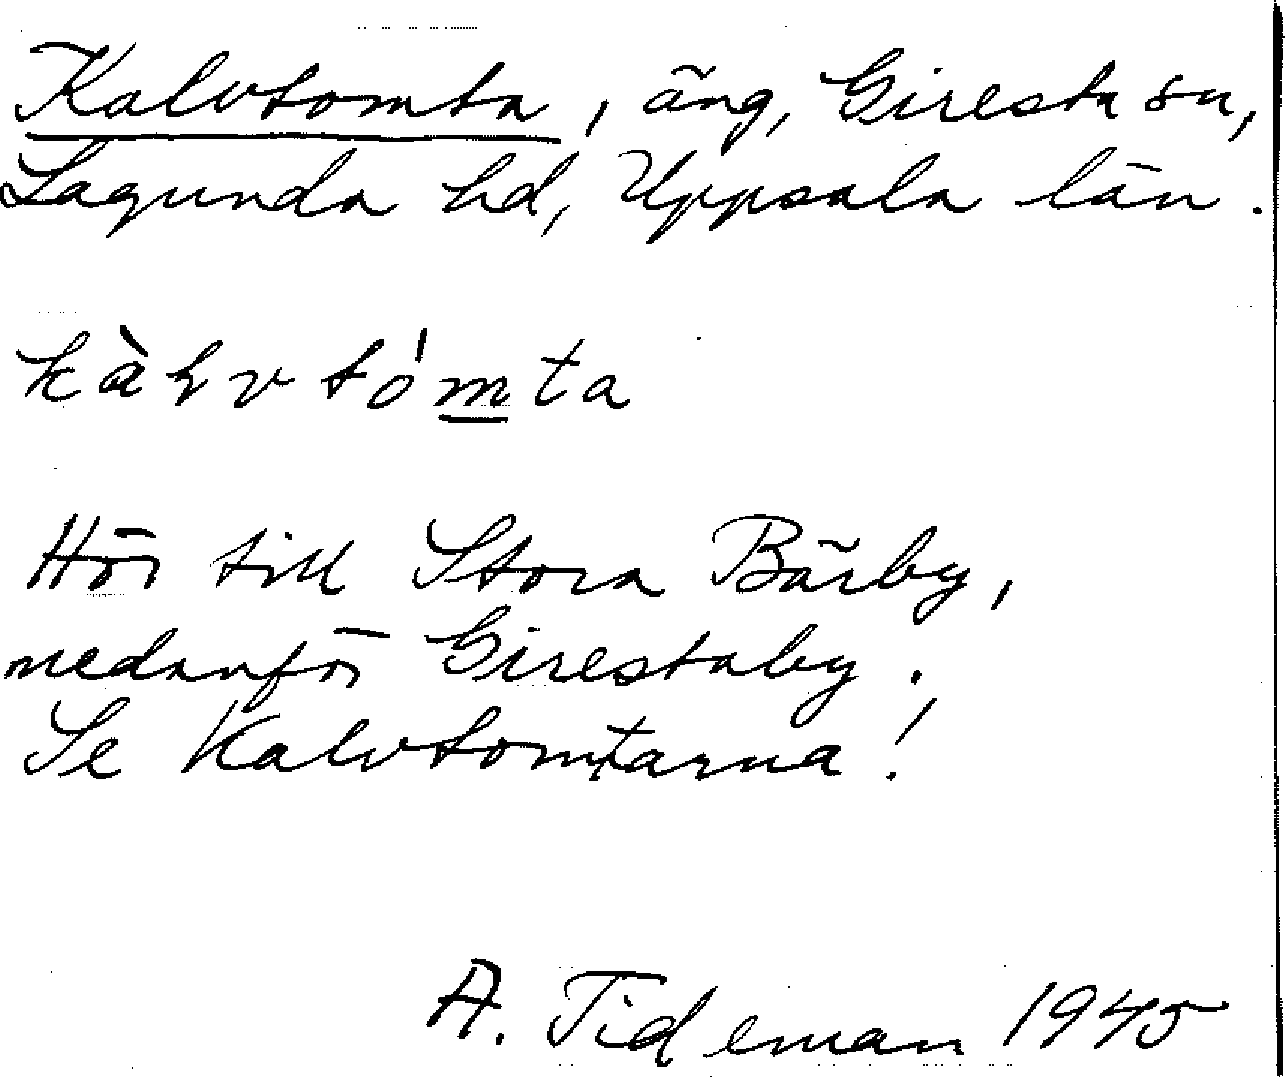 Kalvtomta, äng, Giresta sn,
Lagunda hd, Uppsala län.
kàɮvtómta
Hör till Stora Bärby,
nedanför Girestaby.
Se Kalvtomtarna!
A. Tideman 1945